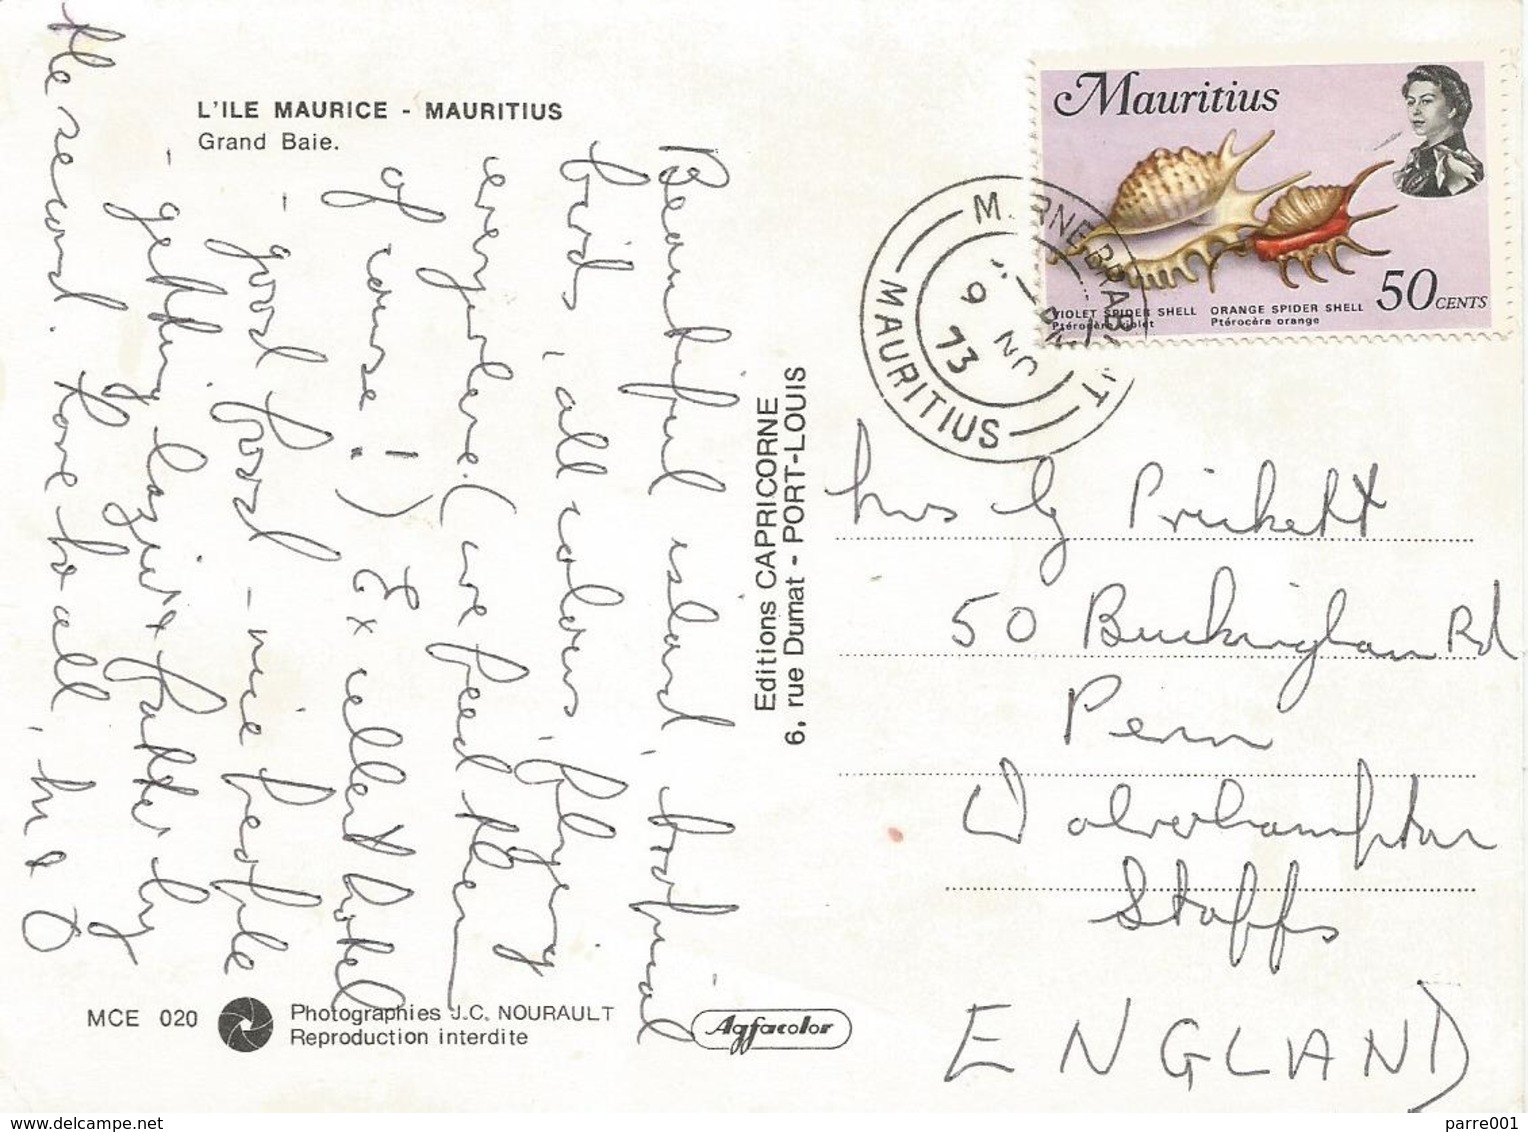 L'ILE MAURICE - MAURITIUS
Grand Baie.
Beautiful island, tropical
birds, all colours, flying
everywhere. (we feed them
of course!) Excellent hotel
- good food - nice people
- getting lazier & fatter by
the second. Love to all,
Editions CAPRICORNE
6, rue Dumat - PORT-LOUIS
Mauritius
50 CENTS
VIOLET SPIDER SHELL ORANGE SPIDER SHELL
Ptérocère violet Ptérocère orange
MAURITIUS
9 NO
73
Mrs G Prickett
50 Buckingham Rd
Penn
Wolverhampton
Staffs
ENGLAND
MCE 020
Photographies J.C. NOURAULT
Reproduction interdite
Agfacolor
delcampe.net
parre001